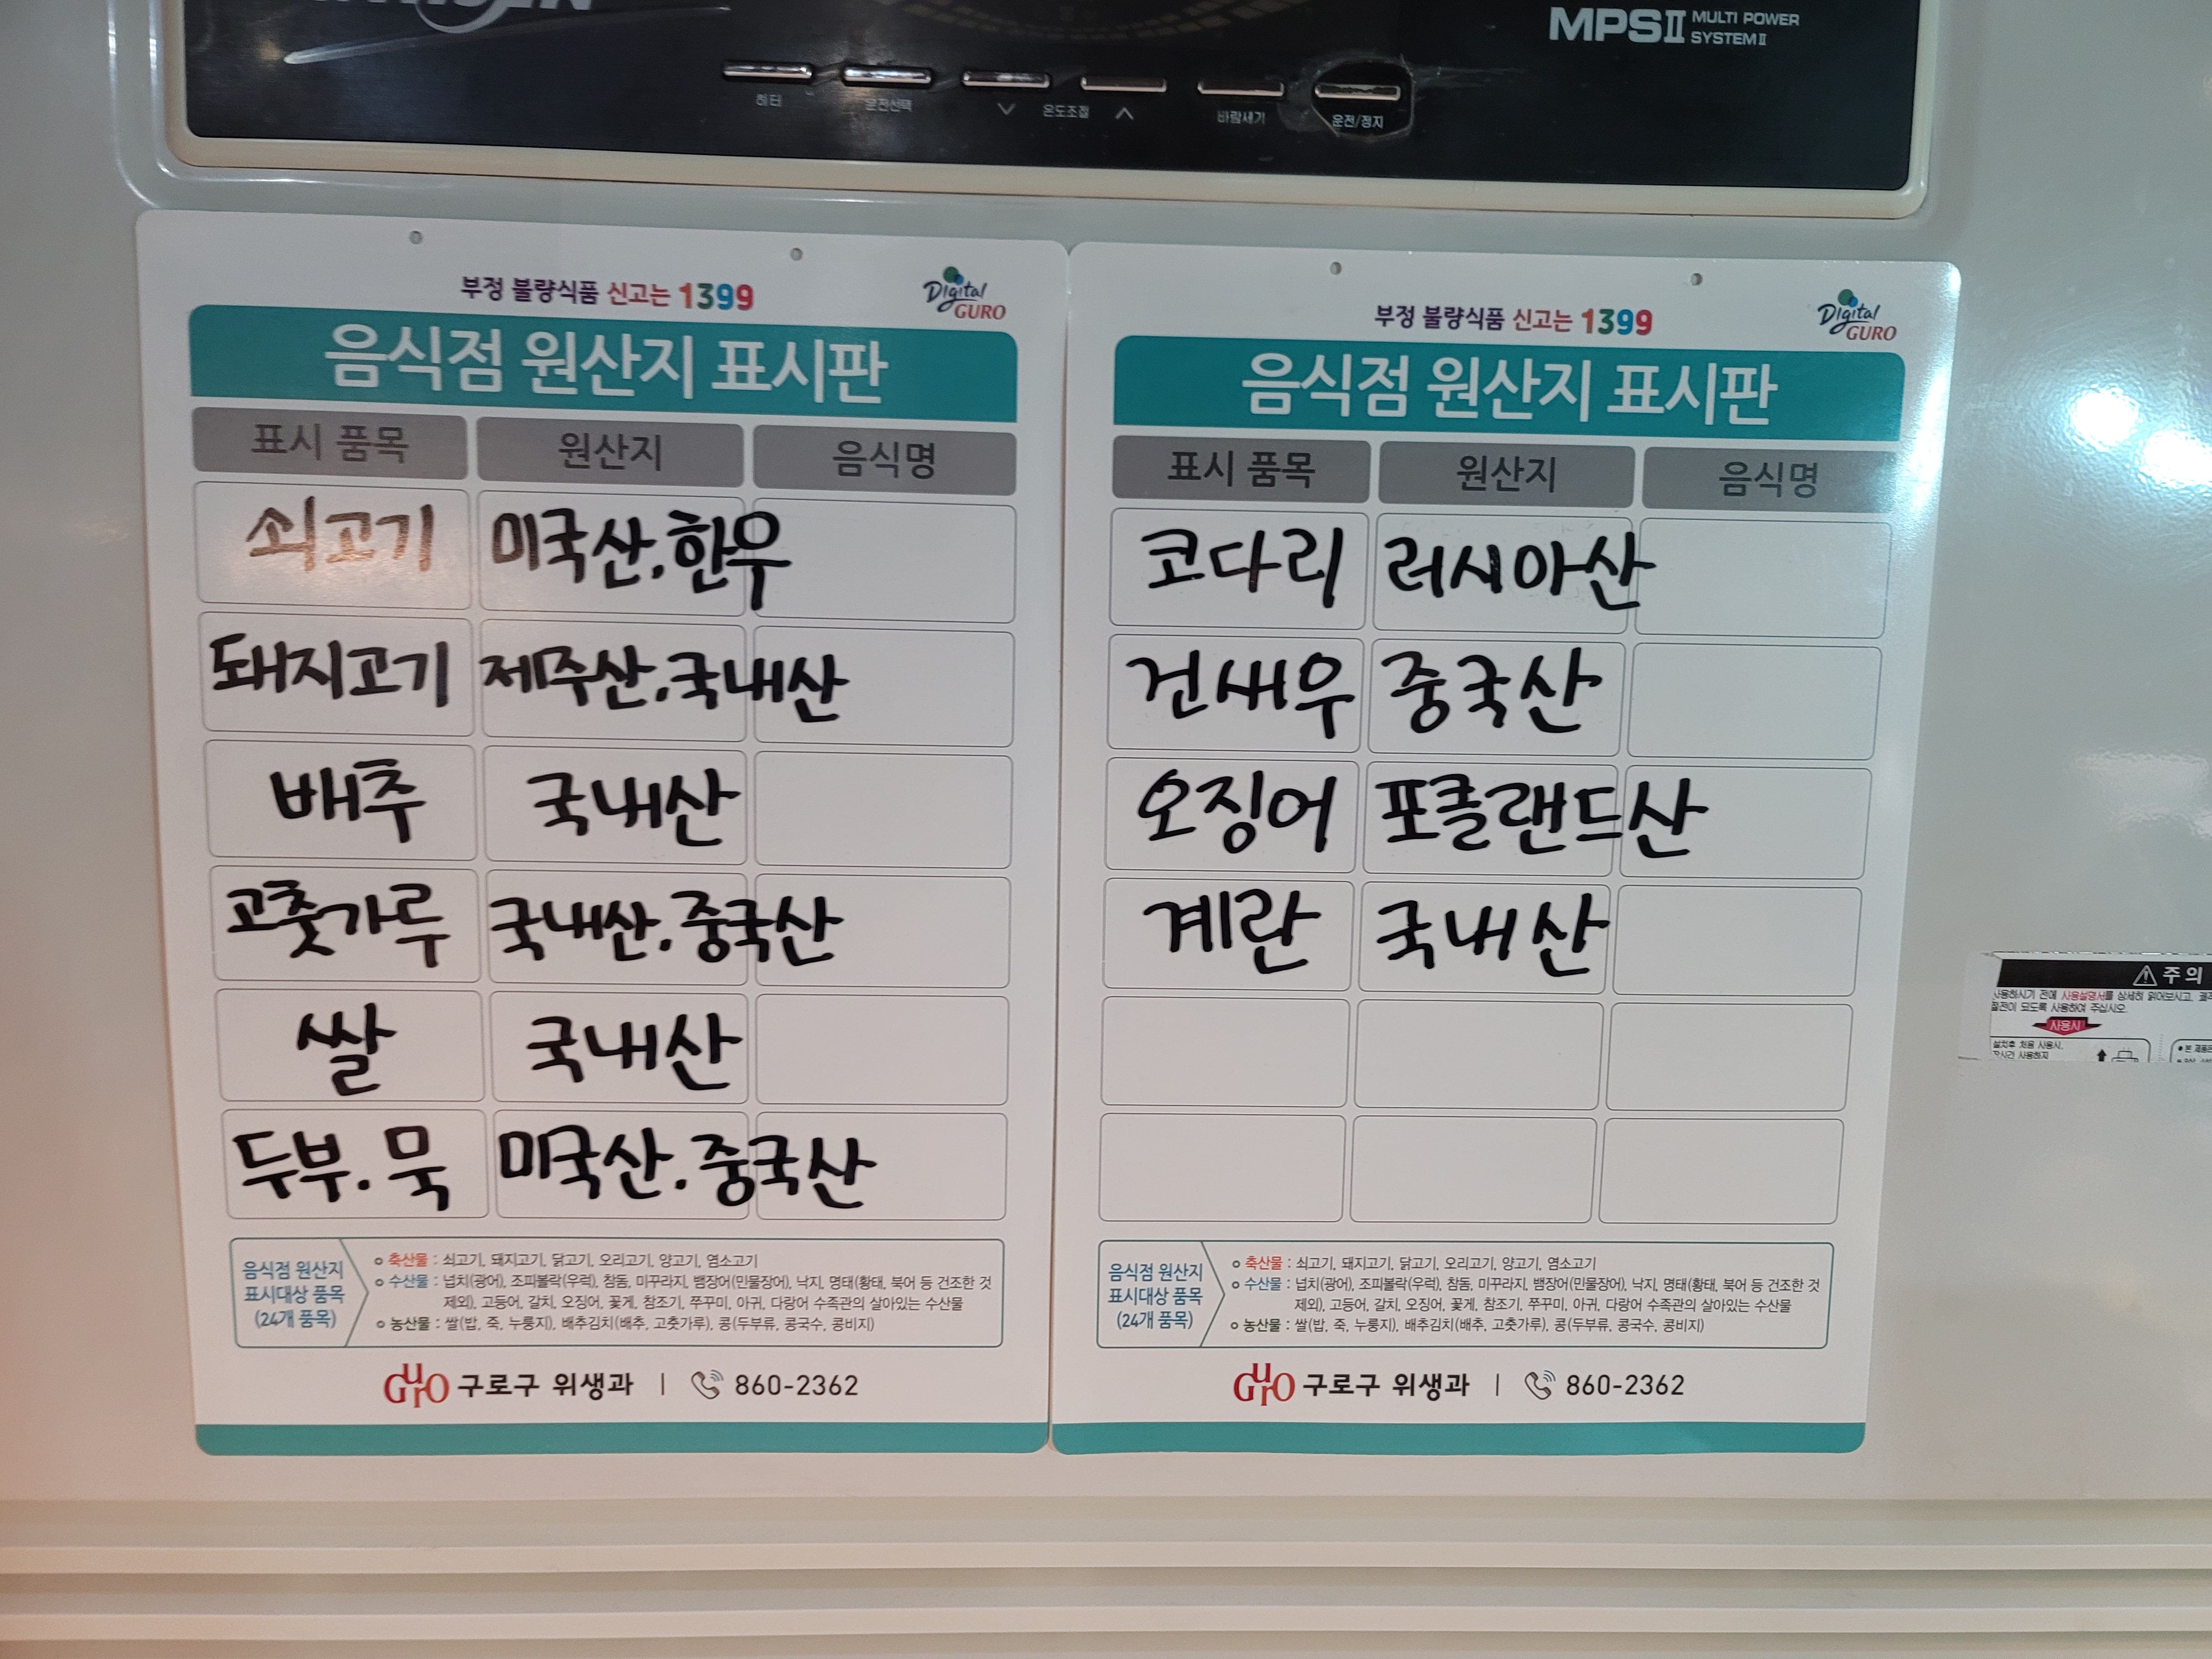 MPSII MULTI POWER
SYSTEM II
히터 운전선택 온도조절 바람세기 운전/정지
부정 불량식품 신고는 1399
Digital
GURO
음식점 원산지 표시판
표시 품목 원산지 음식명
쇠고기 미국산.한우
돼지고기 제주산.국내산
배추 국내산
고춧가루 국내산.중국산
쌀 국내산
두부.묵 미국산.중국산
음식점 원산지
표시대상 품목
(24개 품목)
축산물 : 쇠고기, 돼지고기, 닭고기, 오리고기, 양고기, 염소고기
수산물 : 넙치(광어), 조피볼락(우럭), 참돔, 미꾸라지, 뱀장어(민물장어), 낙지, 명태(황태, 북어 등 건조한 것
제외), 고등어, 갈치, 오징어, 꽃게, 참조기, 쭈꾸미, 아귀, 다랑어 수족관의 살아있는 수산물
농산물 : 쌀(밥, 죽, 누룽지), 배추김치(배추, 고춧가루), 콩(두부류, 콩국수, 콩비지)
GurO 구로구 위생과 | 860-2362
부정 불량식품 신고는 1399
Digital
GURO
음식점 원산지 표시판
표시 품목 원산지 음식명
코다리 러시아산
건새우 중국산
오징어 포클랜드산
계란 국내산
음식점 원산지
표시대상 품목
(24개 품목)
축산물 : 쇠고기, 돼지고기, 닭고기, 오리고기, 양고기, 염소고기
수산물 : 넙치(광어), 조피볼락(우럭), 참돔, 미꾸라지, 뱀장어(민물장어), 낙지, 명태(황태, 북어 등 건조한 것
제외), 고등어, 갈치, 오징어, 꽃게, 참조기, 쭈꾸미, 아귀, 다랑어 수족관의 살아있는 수산물
농산물 : 쌀(밥, 죽, 누룽지), 배추김치(배추, 고춧가루), 콩(두부류, 콩국수, 콩비지)
GurO 구로구 위생과 | 860-2362
주의
사용하시기 전에 사용설명서를 상세히 읽어보시고,
되도록 사용하여 주십시오.
사용시
설치후 처음 사용시,
장시간 사용하지